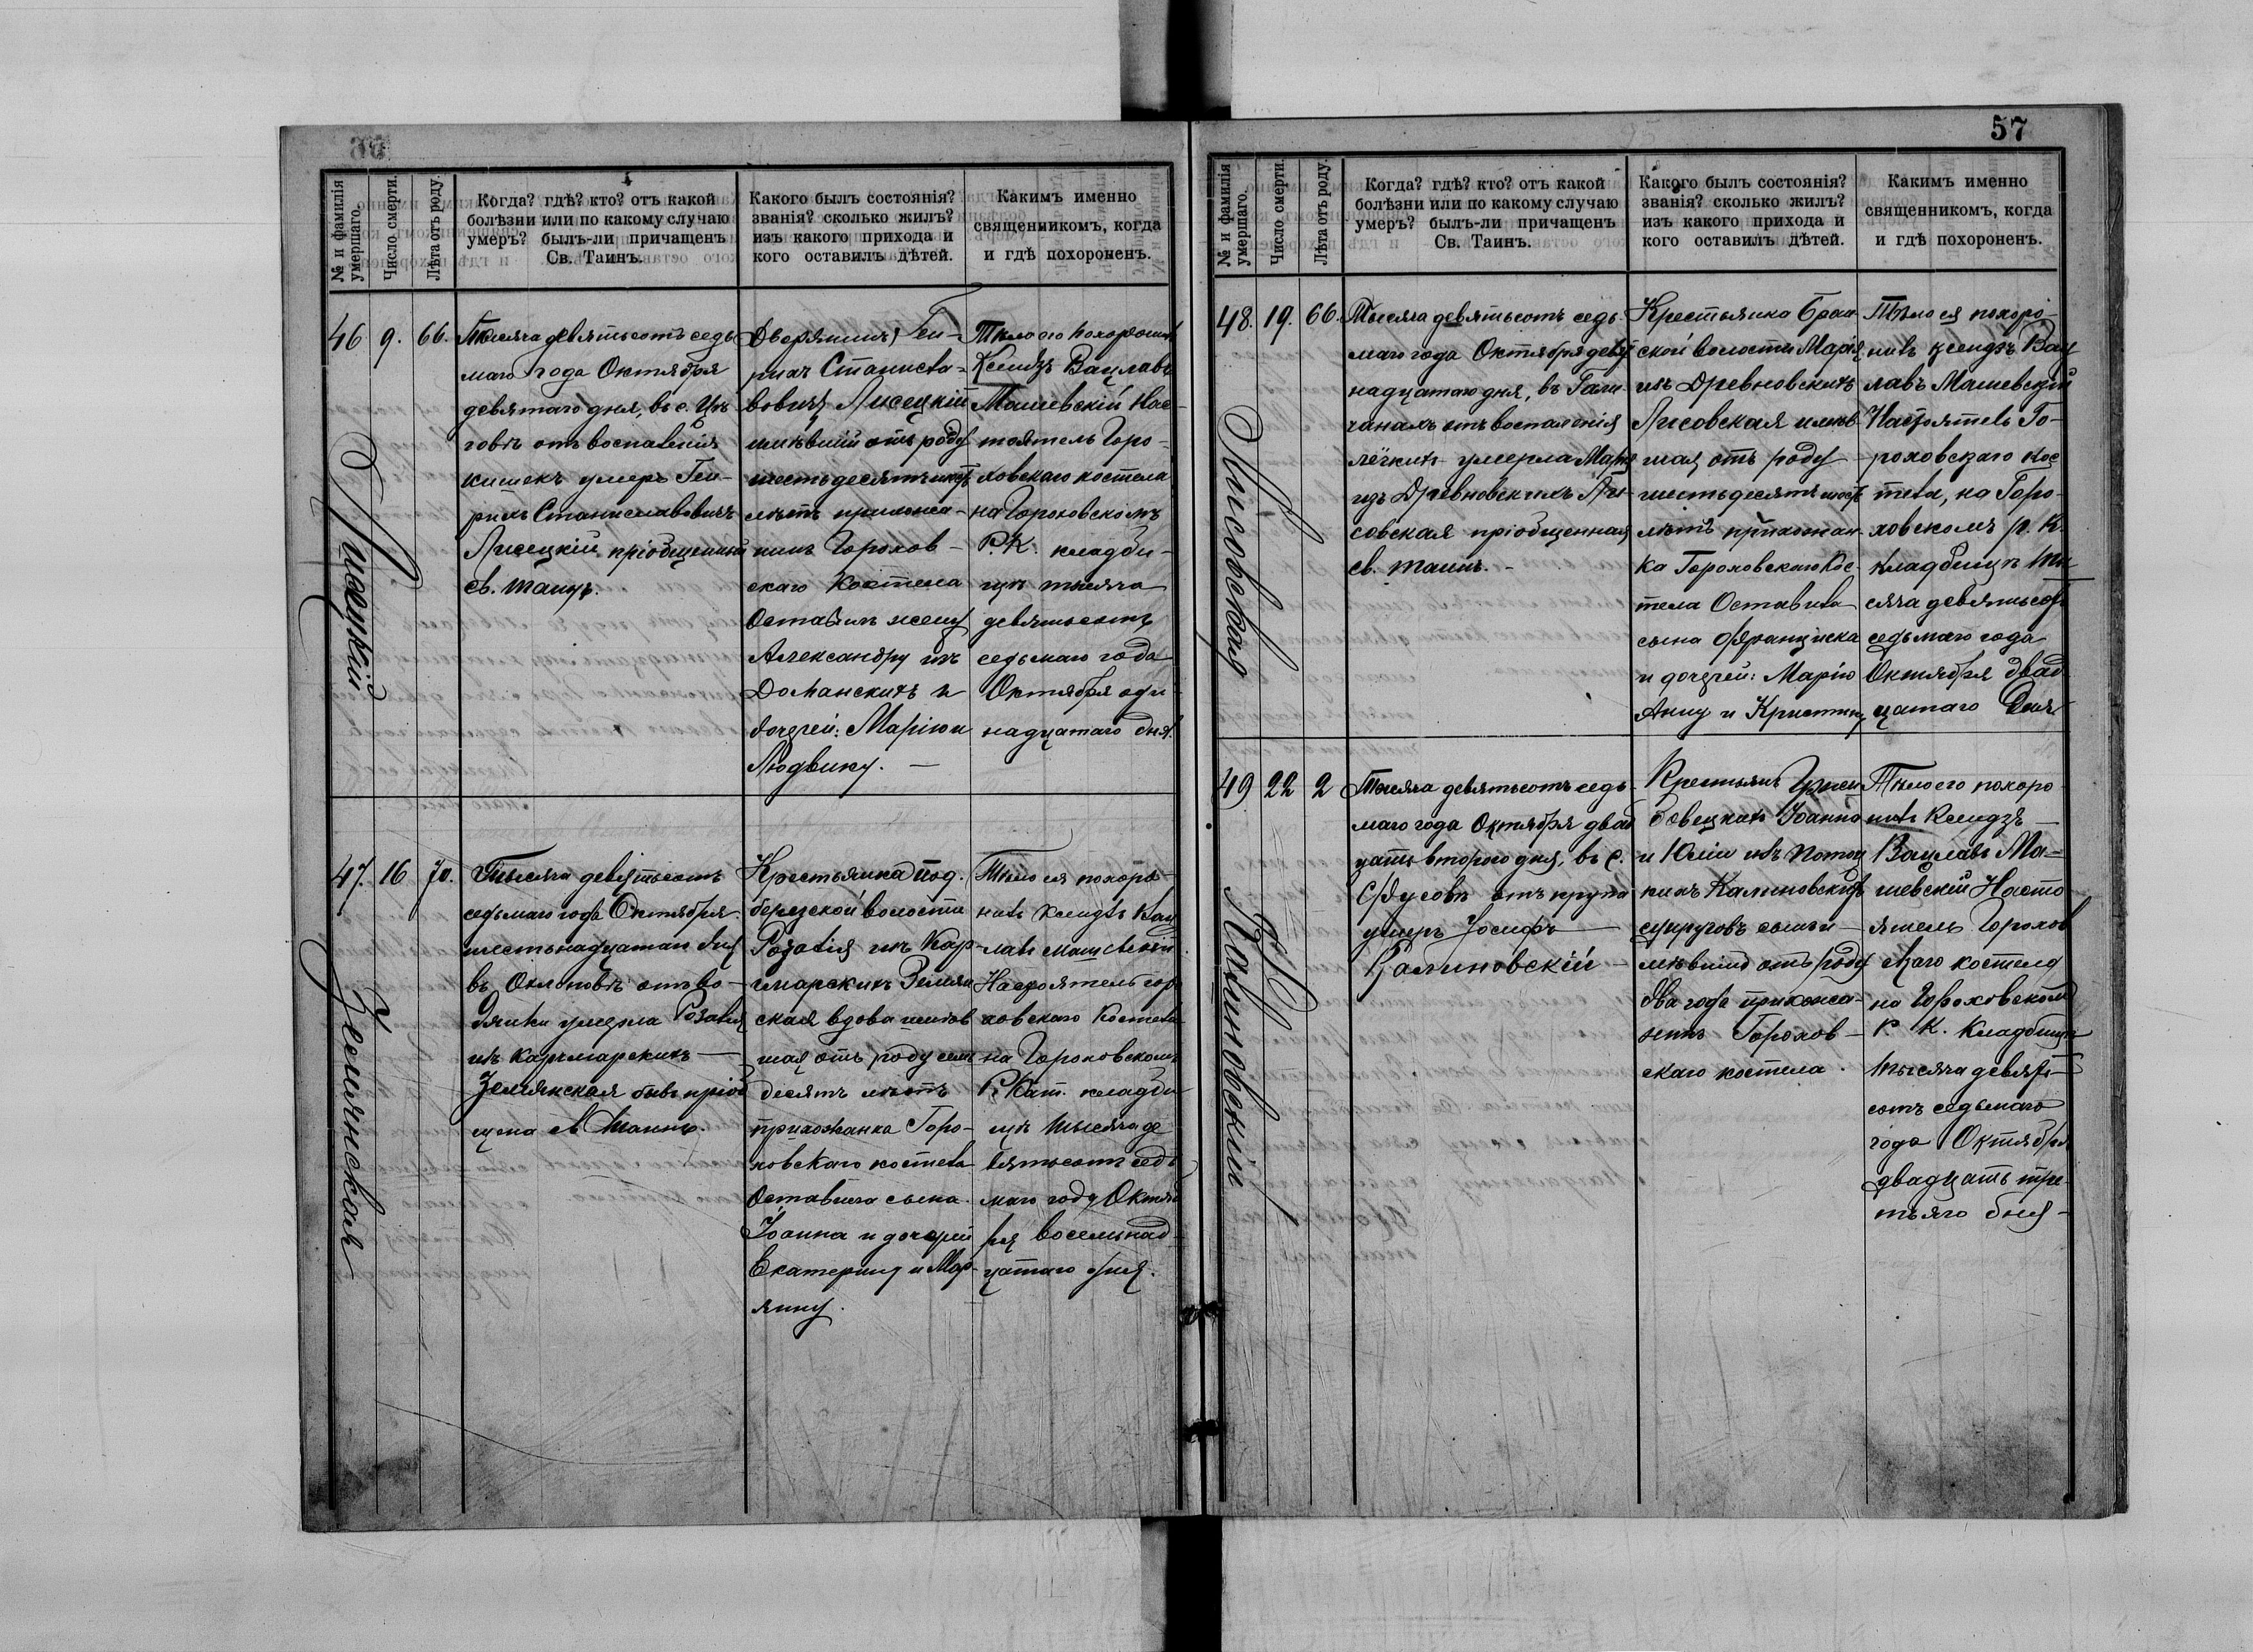 № и фамилія
умершаго.
Число смерти.
Лѣта отъ роду.
Когда? гдѣ? кто? отъ какой
болѣзни или по какому случаю
умеръ? былъ-ли причащенъ
Св. Таинъ.
Какого былъ состоянія?
званія? сколько жилъ?
изъ какого прихода и
кого оставилъ дѣтей.
Какимъ именно
священникомъ, когда
и гдѣ похороненъ.
46
Лисецкій
9.
66.
Тысяча девятьсотъ седь
маго года Октября
девятаго дня, въ с. Цѣ
говѣ отъ воспаленія
кишекъ умеръ Ген-
рихъ Станиславовичъ
Лисецкій пріобщенный
св. таинъ.
Дворянинъ Ген-
рихъ Станисла-
вовичъ Лисецкій
имѣвшій отъ роду
шестьдесятъ шесть
лѣтъ прихожа-
нинъ Горохов-
скаго Костела
Оставилъ жену
Александру изъ
Доманскихъ и
дочерей: Марію и
Людвику. —
Тѣло его похоронилъ
Ксендзъ Вацлавъ
Машевскій Нас-
тоятель Горо-
ховскаго костела
на Гороховскомъ
Р.К. кладби-
щѣ тысяча
девятьсотъ
седьмаго года
Октября оди-
надцатаго дня.
47.
Землянская
16
70.
Тысяча девятьсотъ
седьмаго года Октября
шестьнадцатаго дня
въ Охлоповѣ отъ во-
дянки умерла Розалія
изъ Карчмарскихъ —
Землянская бывъ пріоб
щена св Таинъ.
Крестьянка Под-
березской волости
Розалія изъ Кар-
чмарскихъ Землян
ская вдова имѣв
шая отъ роду семь
десятъ лѣтъ
прихожанка Горо-
ховскаго костела
Оставила сына
Іоанна и дочерей
Екатерину и Мар-
янну.
Тѣло ея похоро-
нилъ Ксендзъ Вац
лавъ Машевскій
Настоятель Горо
ховскаго Костела
на Гороховскомъ
Р. Кат. кладби
щѣ тысяча де
вятьсотъ седь
маго года Октяб
ря восемьнад-
цатаго дня.
57
№ и фамилія
умершаго.
Число смерти.
Лѣта отъ роду.
Когда? гдѣ? кто? отъ какой
болѣзни или по какому случаю
умеръ? былъ-ли причащенъ
Св. Таинъ.
Какого былъ состоянія?
званія? сколько жилъ?
изъ какого прихода и
кого оставилъ дѣтей.
Какимъ именно
священникомъ, когда
и гдѣ похороненъ.
48.
Лисовская
19.
66.
Тысяча девятьсотъ седь-
маго года Октября девят
надцатаго дня, въ Гали-
чанахъ отъ воспаленія
лёгкихъ умерла Марія
изъ Древновскихъ Ли-
совская пріобщенная
св. таинъ. -
Крестьянка Бран-
ской волости Марія
изъ Древновскихъ
Лисовская имѣв
шая отъ роду
шестьдесятъ шесть
лѣтъ прихожан-
ка Гороховскаго Кос-
тела Оставила
сына Франциска
и дочерей: Марію
Анну и Кристину
Тѣло ея похоро-
нилъ ксендзъ Вац
лавъ Машевскій
Настоятель Го-
роховскаго кос
тела, на Горо-
ховскомъ р. к.
кладбищѣ ты-
сяча девятьсотъ
седьмаго года
Октября двад
цатаго Дня
49
Калиновскій
22
2
Тысяча девятьсотъ седь-
маго года Октября двад
цать второго дня, въ с.
отъ крупа
умеръ Іосифъ —
Калиновскій —
Крестьянъ
Іоанна
и Юліи изъ
Калиновскихъ
супруговъ сынъ и-
мѣвшій отъ роду
два года прихожа-
нинъ Горохов-
скаго костела.
Тѣло его похоро
нилъ Ксендзъ —
Вацлавъ Ма-
шевскій Насто
ятель Горохов
скаго костела
на Гороховскомъ
Р. К. Кладбищѣ
тысяча девять-
сотъ седьмаго
года Октября
двадцать тре-
тьяго дня-